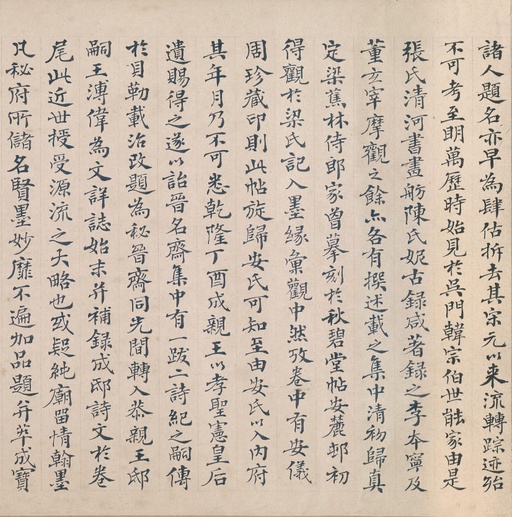 諸人題名亦早為肆估拆去其宋元以来流轉踪迹殆
不可考至明萬歷時始見於吳門韓宗伯世能家由是
張氏清河書畫舫陳氏妮古録咸著録之李本寧及
董玄宰摩觀之餘亦各有撰述載之集中清初歸真
定梁蕉林侍郎家曽摹刻於秋碧堂帖安麓邨初
得觀於梁氏記入墨緣彙觀中然攷卷中有安儀
周珍藏印則此帖旋歸安氏可知至由安氏以入內府
其年月乃不可悉乾隆丁酉成親王以孝聖憲皇后
遺賜得之遂以詒晉名齋集中有一跋二詩紀之嗣傳
於貝勒載治改題為秘晉齋同光間轉入恭親王邸
嗣王溥偉為文詳誌始末并補録成邸詩文於卷
尾此近世授受源流之大略也或疑純廟留情翰墨
凡秘府所儲名賢墨妙靡不遍加品題并萃成寶